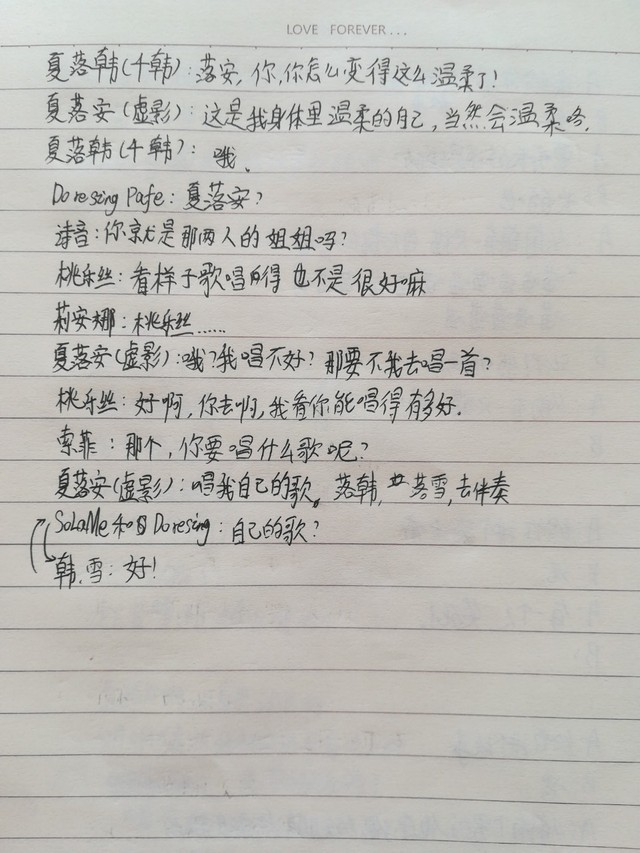 LOVE FOREVER...
夏落韩(千韩):落安,你,你怎么变得这么温柔了!
夏落安(虚影):这是我身体里温柔的自己,当然会温柔咯.
夏落韩(千韩):哦.
Doresing Pafe:夏落安?
诗音:你就是那两人的姐姐吗?
桃乐丝:看样子歌唱的得也不是很好嘛
莉安娜:桃乐丝……
夏落安(虚影):哦?我唱不好?那要不我去唱一首?
桃乐丝:好啊,你去啊,我看你能唱得有多好.
索菲:那个,你要唱什么歌呢?
夏落安(虚影):唱我自己的歌。落韩,落雪,去伴奏
SoLaMe和Doresing:自己的歌?
韩,雪:好!